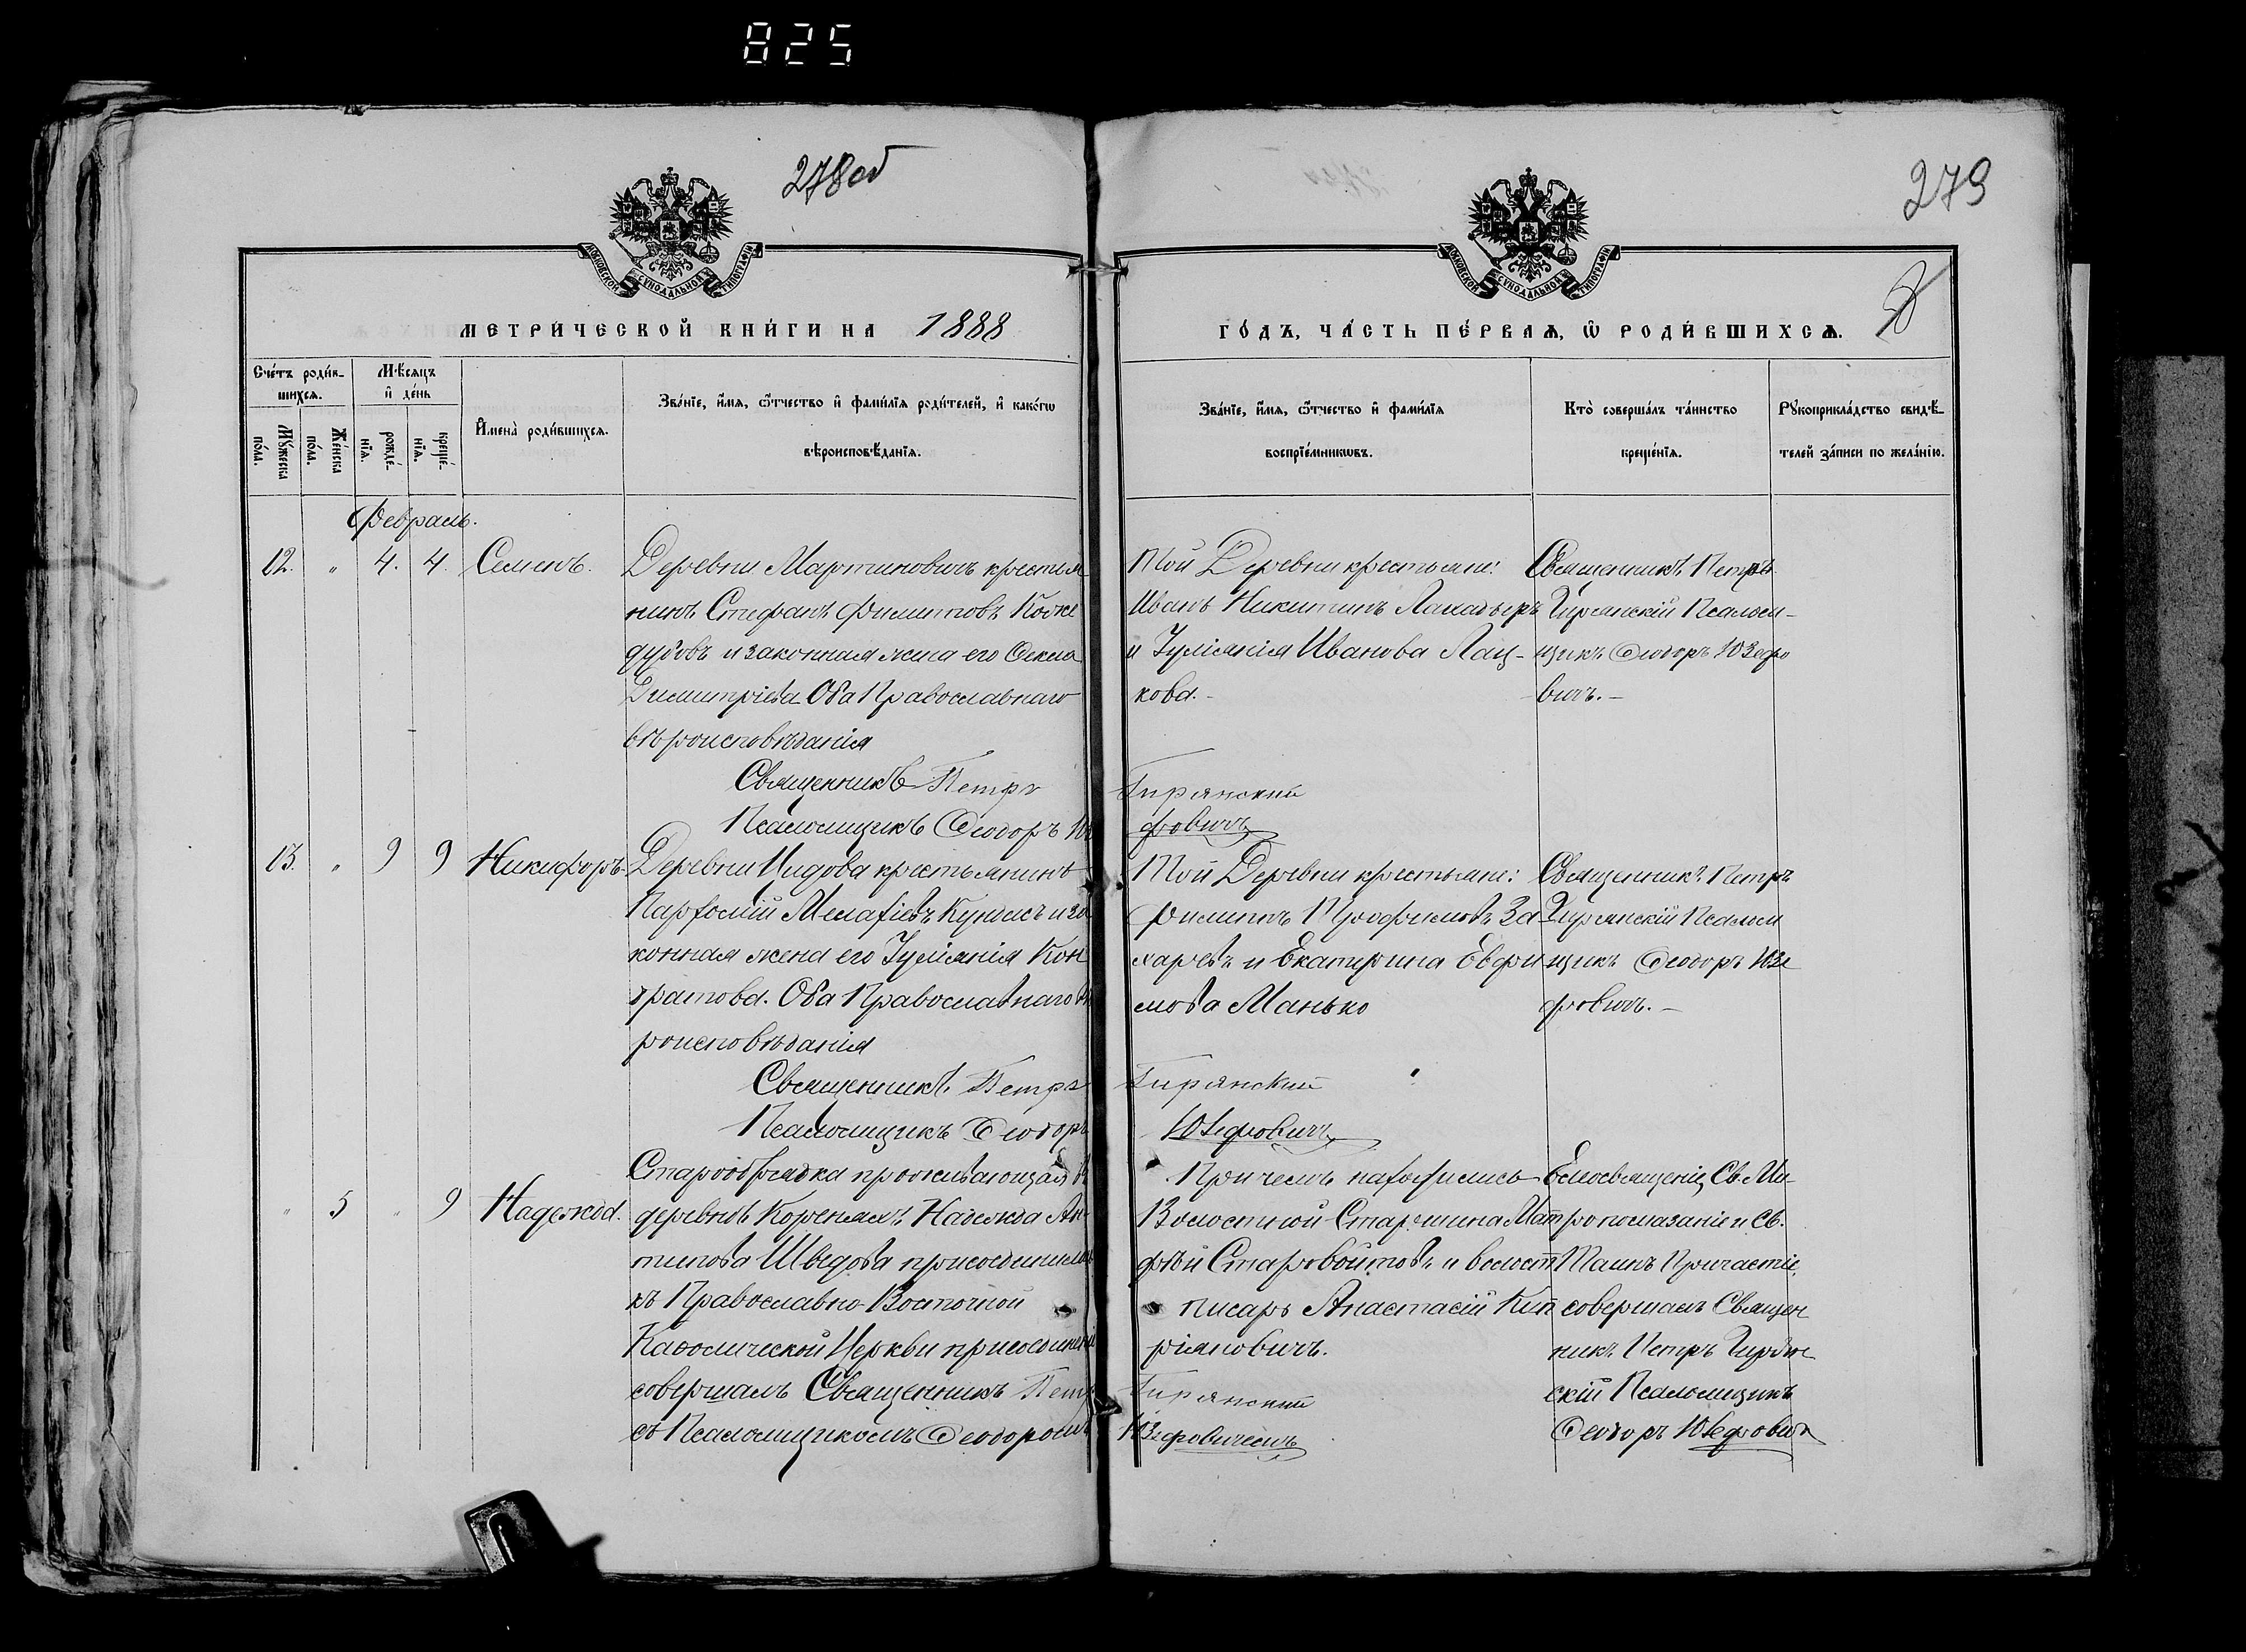 825
278об
279
8
МОСКОВСКОЙ СѴНОДАЛЬНОЙ ТИПОГРАФІИ
МОСКОВСКОЙ СѴНОДАЛЬНОЙ ТИПОГРАФІИ
МЕТРИ́ЧЕСКОЙ КНИ́ГИ НА 1888
ГО́ДЪ, ЧА́СТЬ ПЕ́РВАѦ, Ѡ҆ РОДИ́ВШИХСѦ.
Сче́тъ роди́в-
шихсѧ.
Мѣ́сѧцъ
и҆ де́нь
Мꙋ́жеска
по́ла.
Же́нска
по́ла.
рожде́-
нїѧ.
креще́-
нїѧ.
И҆мена̀ роди́вшихсѧ.
Зва́нїе, и҆́мѧ, ѻ҆́тчество и҆ фами́лїѧ роди́телей, и҆ како́гѡ
вѣроисповѣ́данїѧ.
Зва́нїе, и҆́мѧ, ѻ҆́тчество и҆ фами́лїѧ
воспрїе́мникѡвъ.
Кто̀ соверша́лъ та́инство
креще́нїѧ.
Рꙋкоприкла́дство свидѣ́-
телей за́писи по жела́нїю.
Февраль.
12. " 4. 4. Семенъ.
Деревни Мартиновичъ крестья
нинъ Стефанъ Филипповъ Коже
дубовъ и законная жена его Фекла
Димитріева Оба Православнаго
вѣроисповѣданія
Священникъ Петръ
Псаломщикъ Ѳеодоръ Юз
Той Деревни крестьяне:
Иванъ Никитинъ
и Іуліанія Иванова Лац-
кова.-
Гирянскій
фовичъ
Священникъ Петръ
Гирянскій Псалом-
щикъ Ѳеодоръ Юзефо
вичъ.-
13. " 9 9 Никифоръ.
Деревни крестьянинъ
Парѳеній и за
конная жена его Іуліанія Кон
дратова. Оба Православнаго вѣ
роисповѣданія
Священникъ Петръ
Псаломщикъ Ѳеодоръ
Той Деревни крестьяне:
Филиппъ Трофимовъ За-
харовъ и Екатерина Евфи
мова Манько
Гирянскій
Юзефовичъ
Священникъ Петръ
Гирянскій Псалом
щикъ Ѳеодоръ Юзе
фовичъ.-
" 5 " 9 Надежда.
Старообрядка проживающая въ
деревнѣ Кореняхъ Надежда Ан
типова Шведова присоединилась
къ Православно-Восточной
Каѳолической Церкви присоединеніе
совершалъ Священникъ Петръ
съ Псаломщикомъ Ѳеодоромъ
При чемъ находились
Волостной Старшина Мат
фѣй Старовойтовъ и волост
писарь Анастасій Кип
ріановичъ.
Гирянскій
Юзефовичемъ
Елеосвященіе, Св. Ми-
ропомазаніе и Св.
Таинъ Причастіе
совершалъ Священ
никъ Петръ Гирян
скій Псаломщикъ
Ѳеодоръ Юзефовичъ